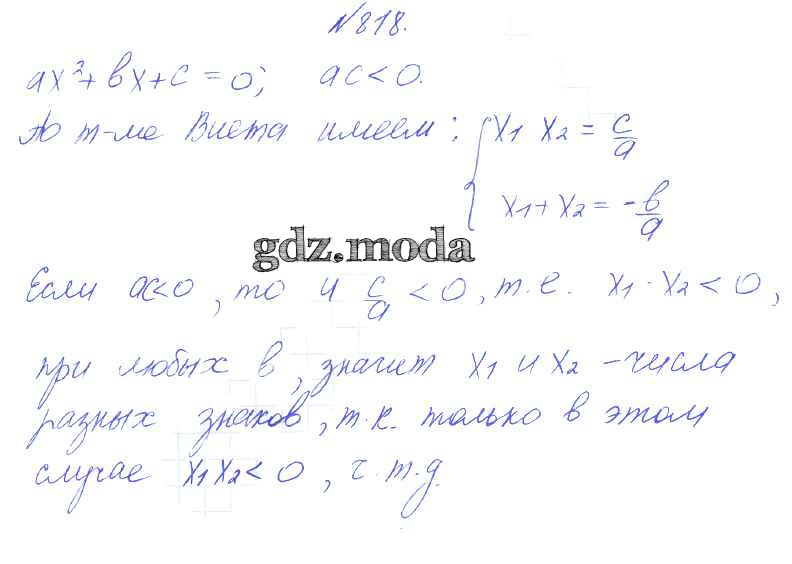 №818.
ax²+bx+c=0; ac<0.
По т-ме Виета имеем: { x₁ x₂ = c/a
x₁+x₂ = -b/a
gdz.moda
Если ac<0, то и c/a <0, т.е. x₁·x₂<0,
при любых b, значит x₁ и x₂ – числа
разных знаков, т.к. только в этом
случае x₁x₂<0, ч.т.д.